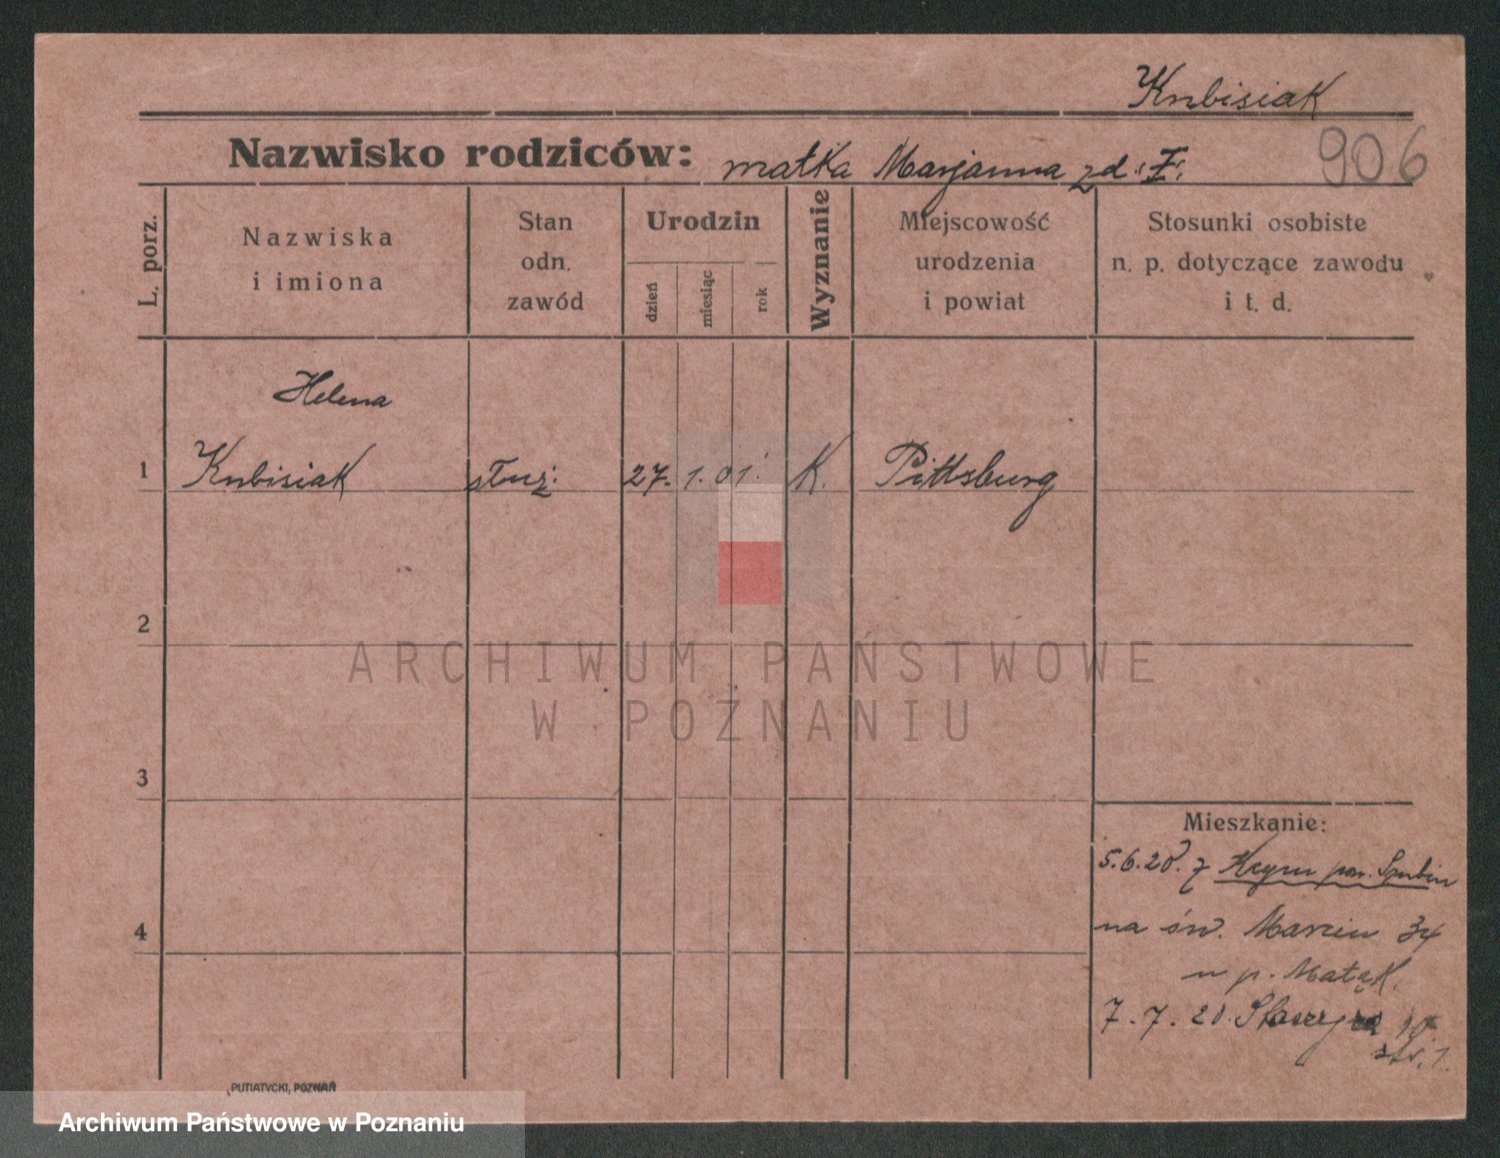 Kubisiak
906
Nazwisko rodziców: matka Marjanna zd. F.
L. porz.
Nazwiska i imiona
Stan odn. zawód
Urodzin
dzień
miesiąc
rok
Wyznanie
Miejscowość urodzenia i powiat
Stosunki osobiste n. p. dotyczące zawodu i t. d.
Helena
1 Kubisiak służ. 27. 1. 01. K. Pittsburg
2
ARCHIWUM PAŃSTWOWE
W POZNANIU
3
Mieszkanie:
5.6.20. z Kcyni pow. Szubin
4
na św. Marcin 34
u p. Matąk.
7. 7. 20.
PUTIATYCKI, POZNAŃ
Archiwum Państwowe w Poznaniu